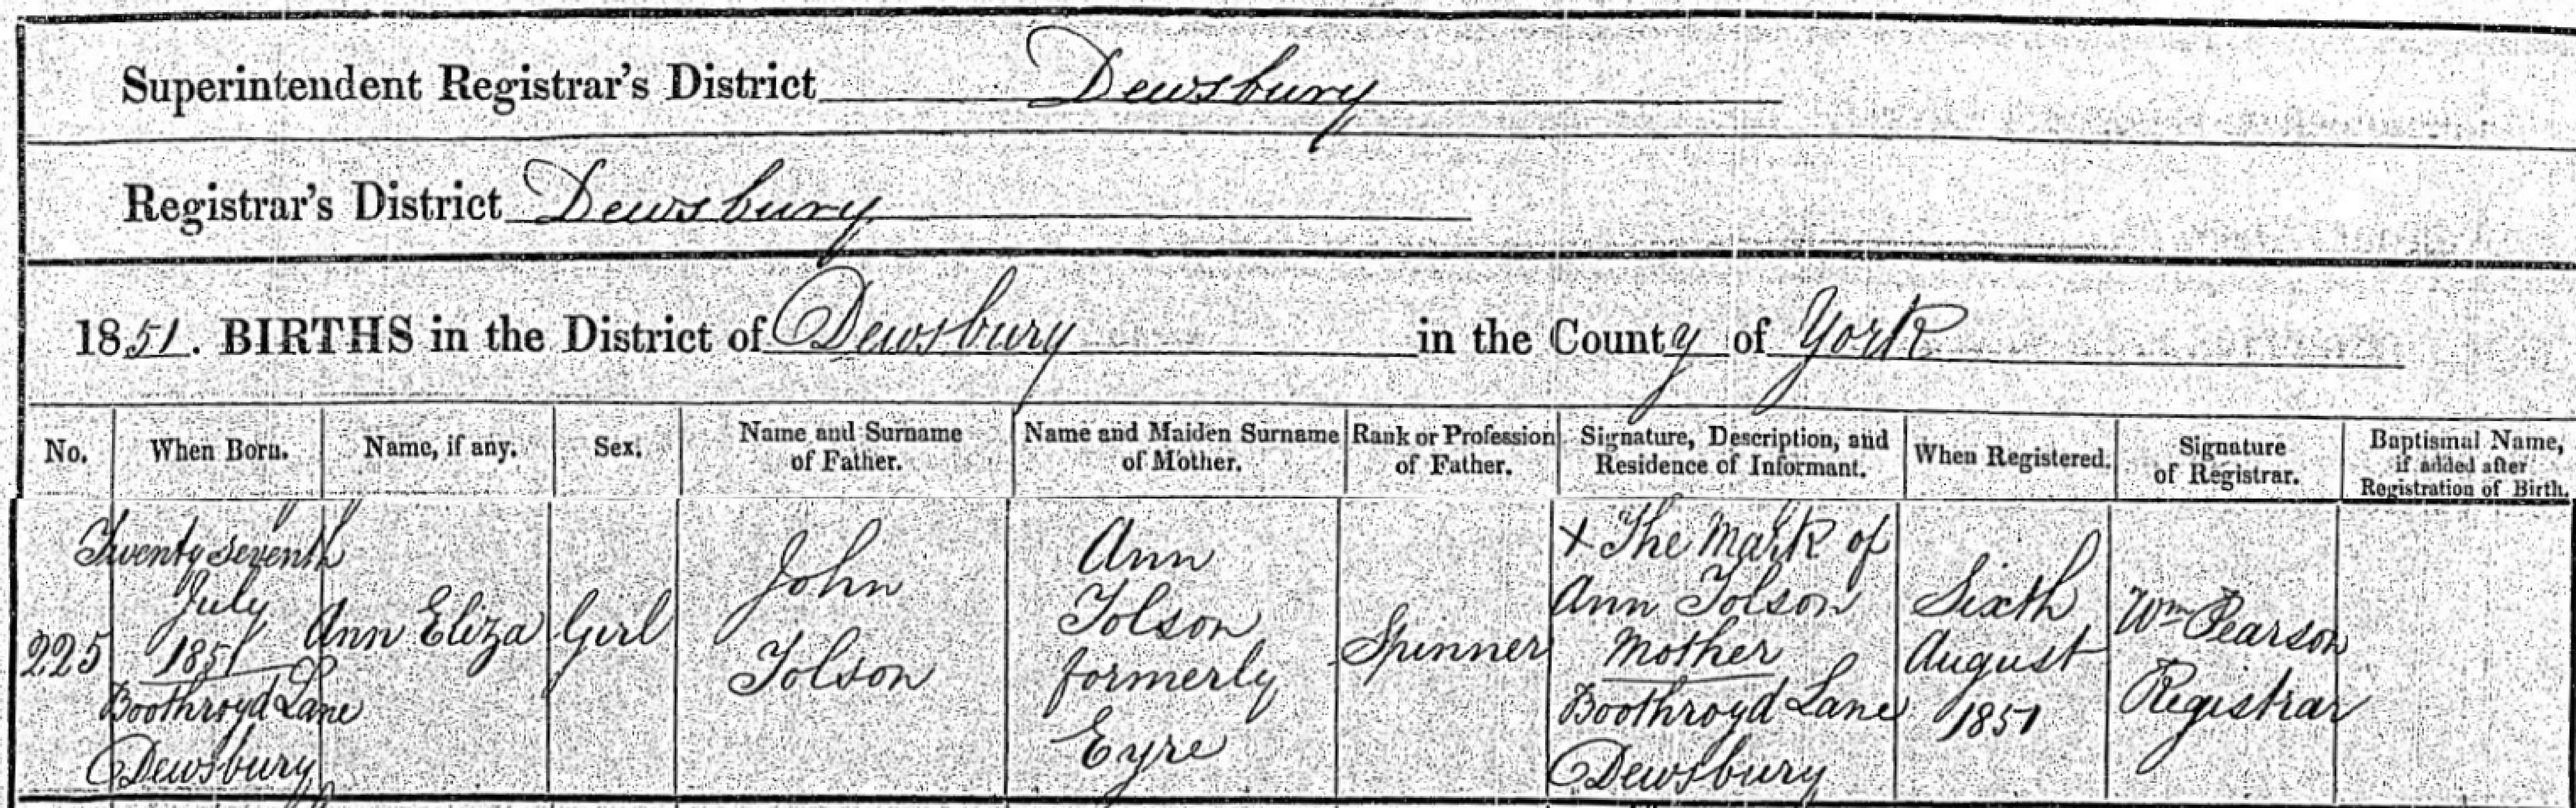 Superintendent Registrar's District Dewsbury
Registrar's District Dewsbury
1851. BIRTHS in the District of Dewsbury in the County of York
No.
When Born.
Name, if any.
Sex.
Name and Surname
of Father.
Name and Maiden Surname
of Mother.
Rank or Profession
of Father.
Signature, Description, and
Residence of Informant.
When Registered.
Signature
of Registrar.
Baptismal Name,
if added after
Registration of Birth.
225
Twenty seventh
July
1851
Boothroyd Lane
Dewsbury
Ann Eliza
Girl
John
Tolson
Ann
Tolson
formerly
Eyre
Spinner
X The Mark of
Ann Tolson
Mother
Boothroyd Lane
Dewsbury
Sixth
August
1851
Wm Pearson
Registrar